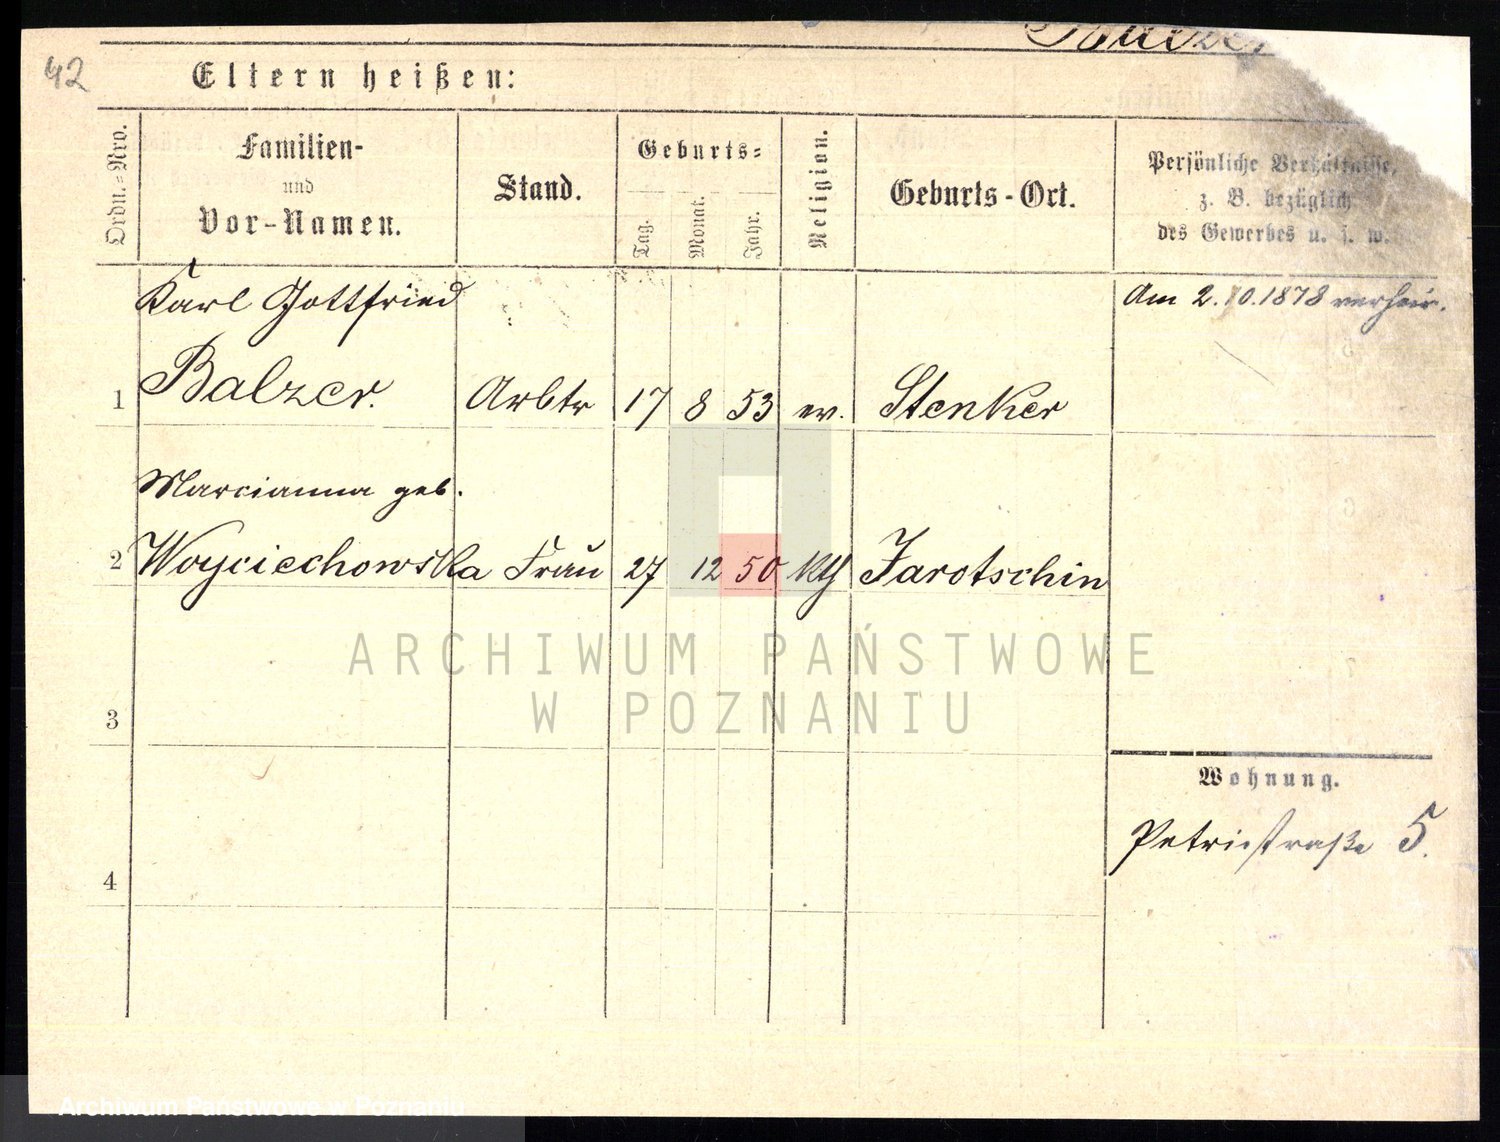 42
Eltern heißen:
Ordn.-Nro.
Familien-
und
Vor-Namen.
Stand.
Geburts-
Tag.
Monat.
Jahr.
Religion.
Geburts-Ort.
Persönliche Verhältnisse,
z. B. bezüglich
des Gewerbes u. s. w.
Karl Gottfried
Am 2.10.1878 verheir.
1 Balzer. Arbtr 17 8 53 ev. Stenker
Marcianna geb.
2 Woyciechowska Frau 27 12 50 kth Jarotschin
ARCHIWUM PAŃSTWOWE
W POZNANIU
3
Wohnung.
Petristraße 5.
4
Archiwum Państwowe w Poznaniu